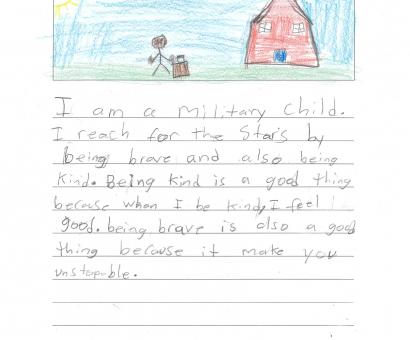 I am a military child.
I reach for the Stars by
being brave and also being
kind. Being kind is a good thing
because when I be kindy I feel
good. being brave is also a good
thing because it make you
unstopable.